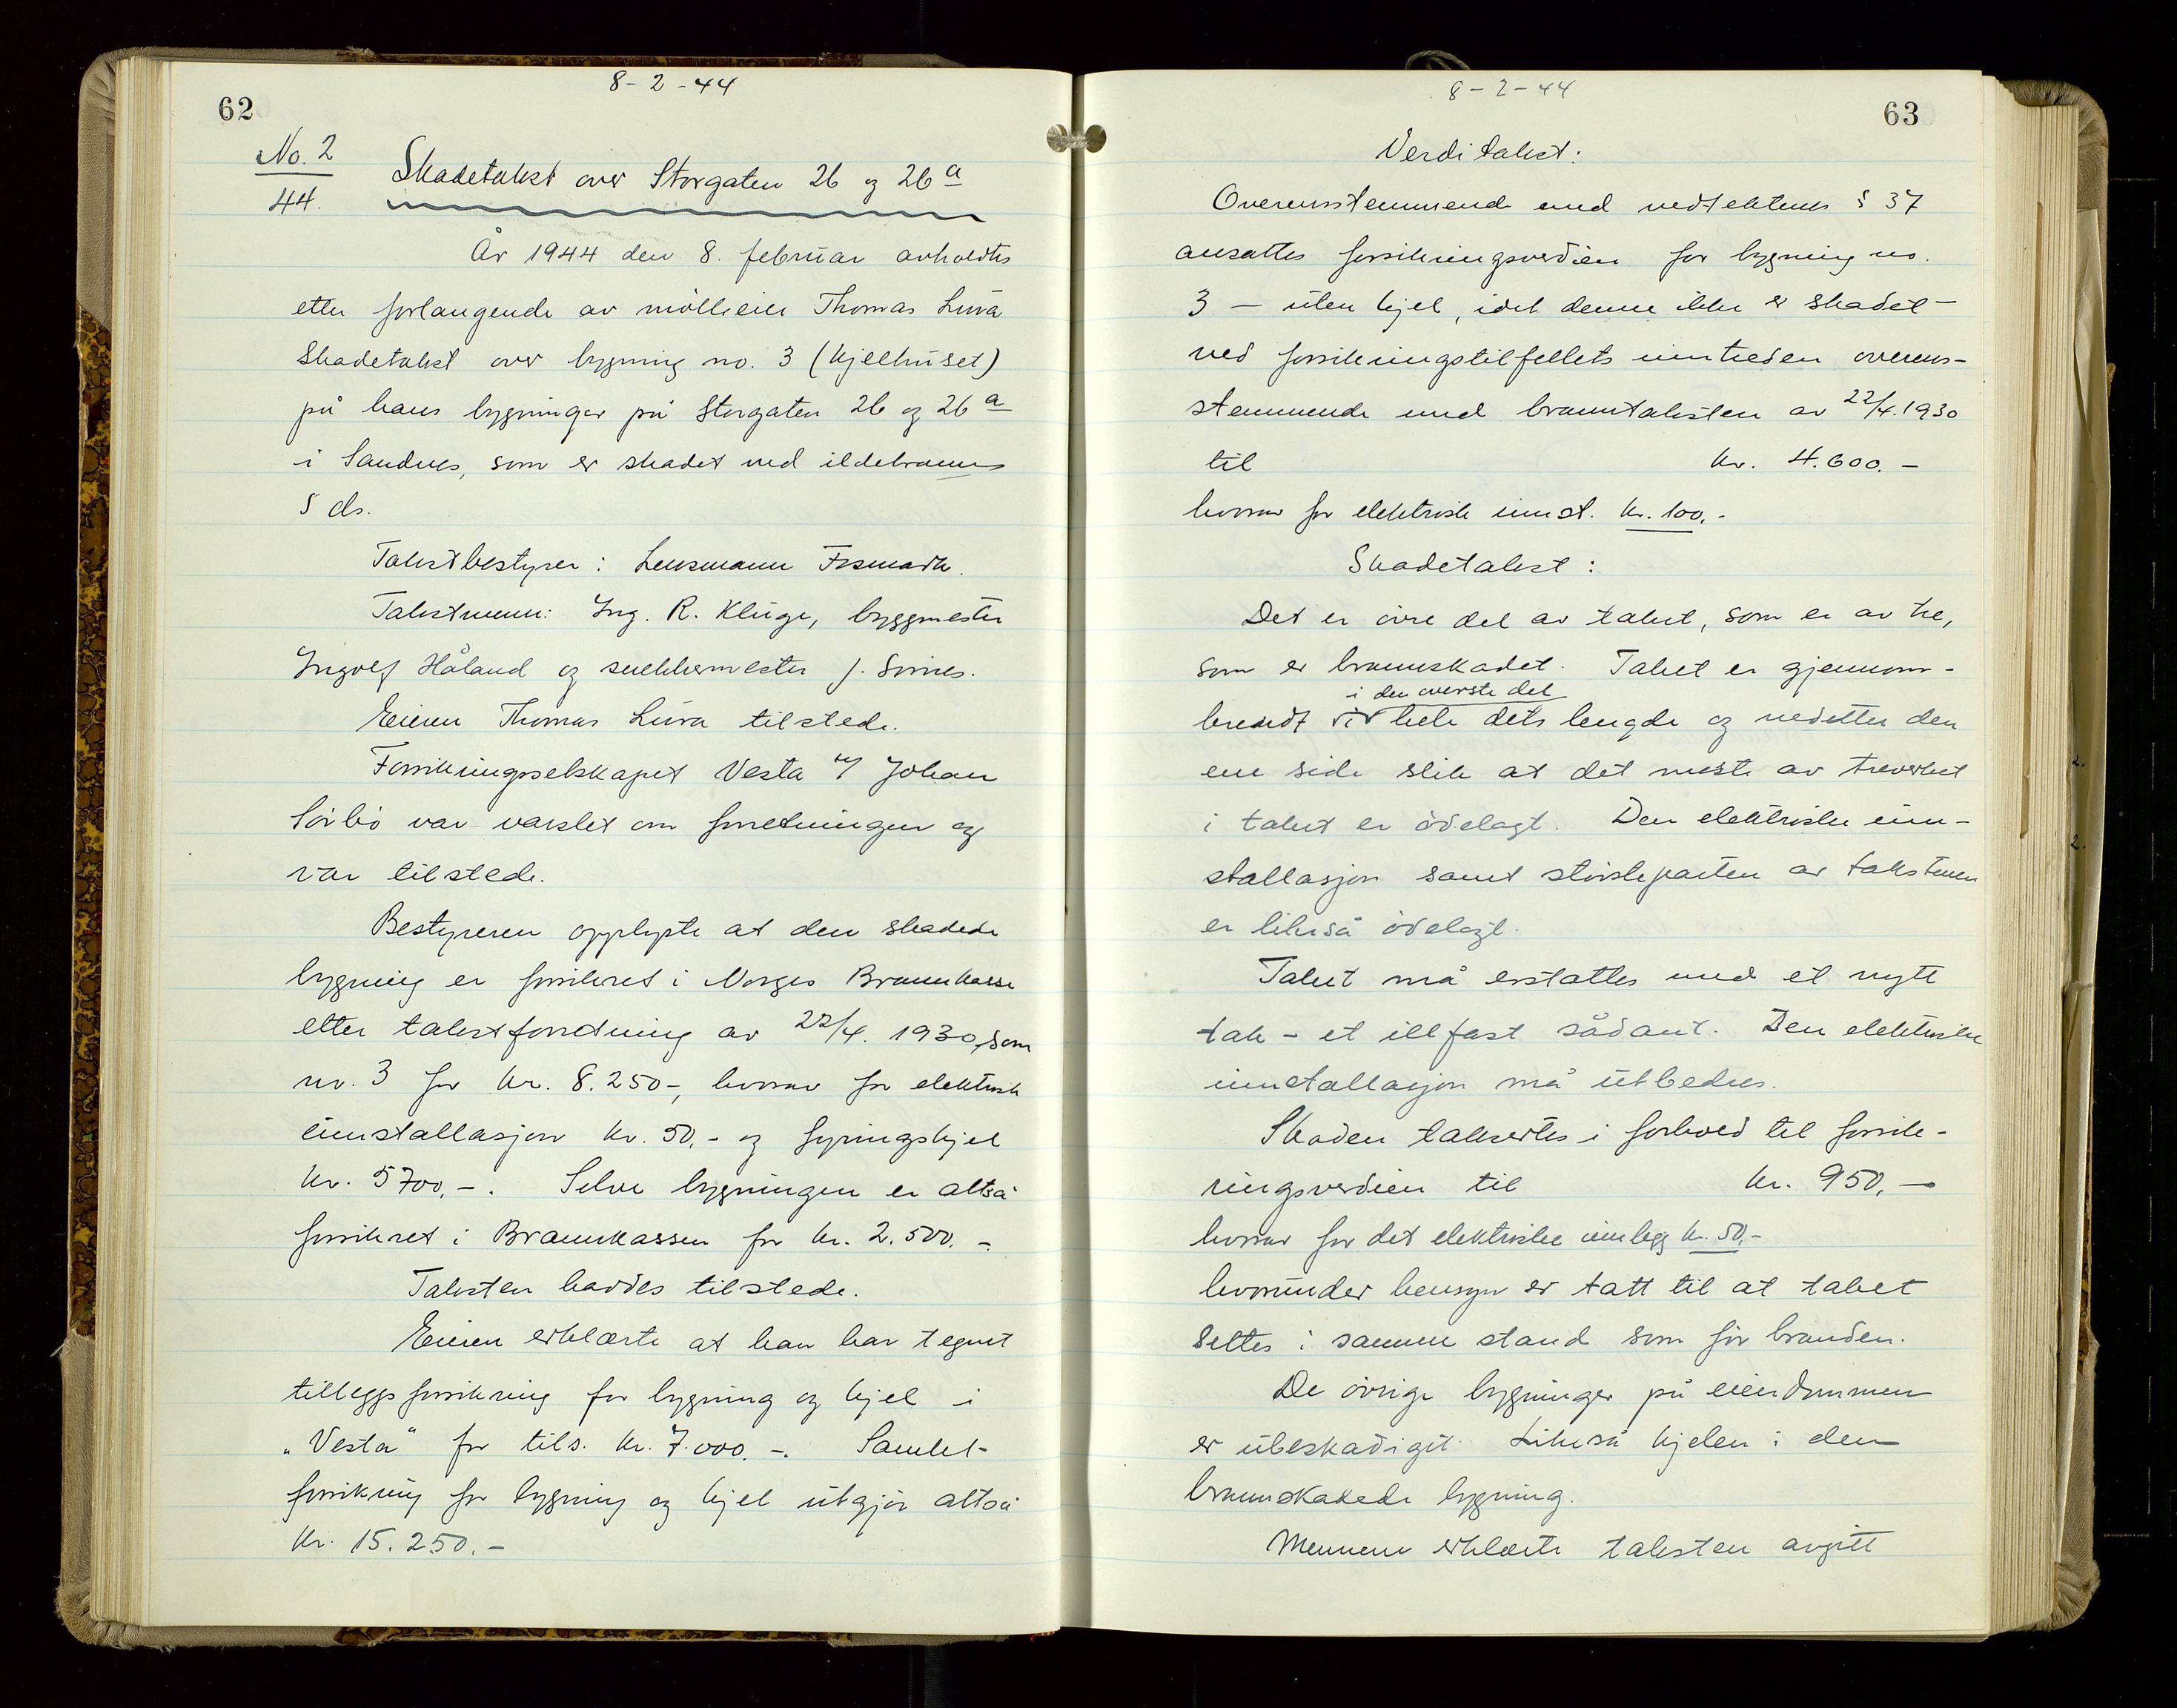 8-2-44
62
No. 2
44.
Skadetakst over Storgaten 26 og 26 a
År 1944 den 8. februar avholdtes
etter forlangende av mølleeier Thomas Lura
skadetakst over bygning no. 3 (kjelhuset)
på hans bygninger på Storgaten 26 og 26 a
i Sandnes, som er skadet ved ildebrann
5 ds.
Takstbestyrer: Lensmann
Takstmenn: Ing. R. Kluge, byggmester
Ingolf Håland og snekkermester J.
Eieren Thomas Lura tilstede.
Forsikringsselskapet Vesta v/ Johan
Sørbø var varslet om forretningen og
var tilstede.
Bestyreren opplyste at den skadede
bygning er forsikret i Norges Brannkasse
etter takstforretning av 22/4. 1930, som
nr. 3 for kr. 8.250-, hvorav for elektrisk
innstallasjon kr. 50,- og fyringskjel
kr. 5700,-. Selve bygningen er altså
forsikret i Brannkassen for kr. 2.500.-
Taksten haddes tilstede.
Eieren erklærte at han har tegnet
tilleggsforsikring for bygning og kjel i
"Vesta" for tils. kr. 7.000.-. Samlet
forsikring for bygning og kjel utgjør altså
kr. 15.250.-
8-2-44
63
Verditakst:
Overensstemmende med vedtektenes § 37
ansattes forsikringsverdien for bygning no.
3 - uten kjel, idet denne ikke er skadet -
ved forsikringstilfellets inntreden overens-
stemmende med branntaksten av 22/4.1930
til kr. 4.600.-
hvorav for elektrisk innst. kr. 100,-
Skadetakst:
Det er øvre del av taket, som er av tre,
som er brannskadet. Taket er gjennom-
i den øverste del
brendt i hele dets lengde og nedetter den
ene side slik at det meste av treverket
i taket er ødelagt. Den elektriske inn-
stallasjon samt størsteparten av takstenen
er likeså ødelagt.
Taket må erstattes med et nytt
tak - et illfast sådant. Den elektriske
innstallasjon må utbedres.
Skaden takseres i forhold til forsik-
ringsverdien til kr. 950,-
hvorav for det elektriske innlegg kr. 50,-
hvorunder hensyn er tatt til at taket
settes i samme stand som før branden.
De øvrige bygninger på eiendommen
er ubeskadiget. Likeså kjelen i den
brannskadede bygning.
Mennene erklærte taksten avgitt